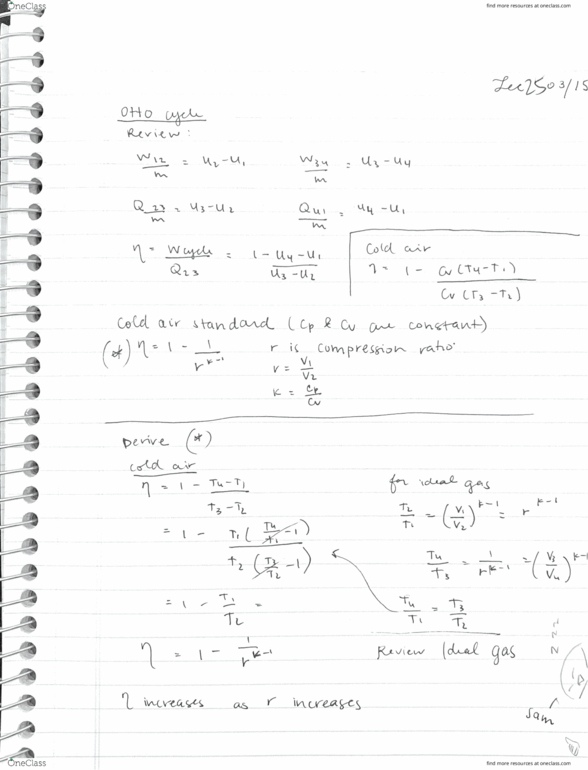 OneClass
find more resources at oneclass.com
Lec25 03/15
Otto cycle
Review:
W12/m = u2-u1    W34/m = u3-u4
Q23/m = u3-u2    Q41/m = u4-u1
η = Wcycle/Q23 = 1 - u4-u1/u3-u2
Cold air
η = 1 - Cv(T4-T1)/Cv(T3-T2)
Cold air standard (Cp & Cv are constant)
(*) η = 1 - 1/r^k-1    r is compression ratio
r = V1/V2
k = Cp/Cv
Derive (*)
cold air
η = 1 - T4-T1/T3-T2
= 1 - T1(T4/T1 -1)/T2(T3/T2 -1)
= 1 - T1/T2 =
η = 1 - 1/r^k-1
for ideal gas
T2/T1 = (V1/V2)^k-1 = r^k-1
T4/T3 = 1/r^k-1 = (V3/V4)^k-1
T4/T1 = T3/T2
Review Ideal gas
zzz
Sam
η increases as r increases
OneClass
find more resources at oneclass.com